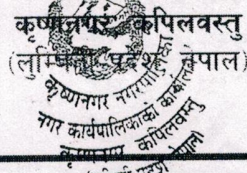 कृष्णनगर कपिलवस्तु
(लुम्बिनी प्रदेश नेपाल)
कृष्णनगर नगरपालिका
नगर कार्यपालिकाको कार्यालय
कृष्णनगर कपिलवस्तु
प्रदेश नेपाल